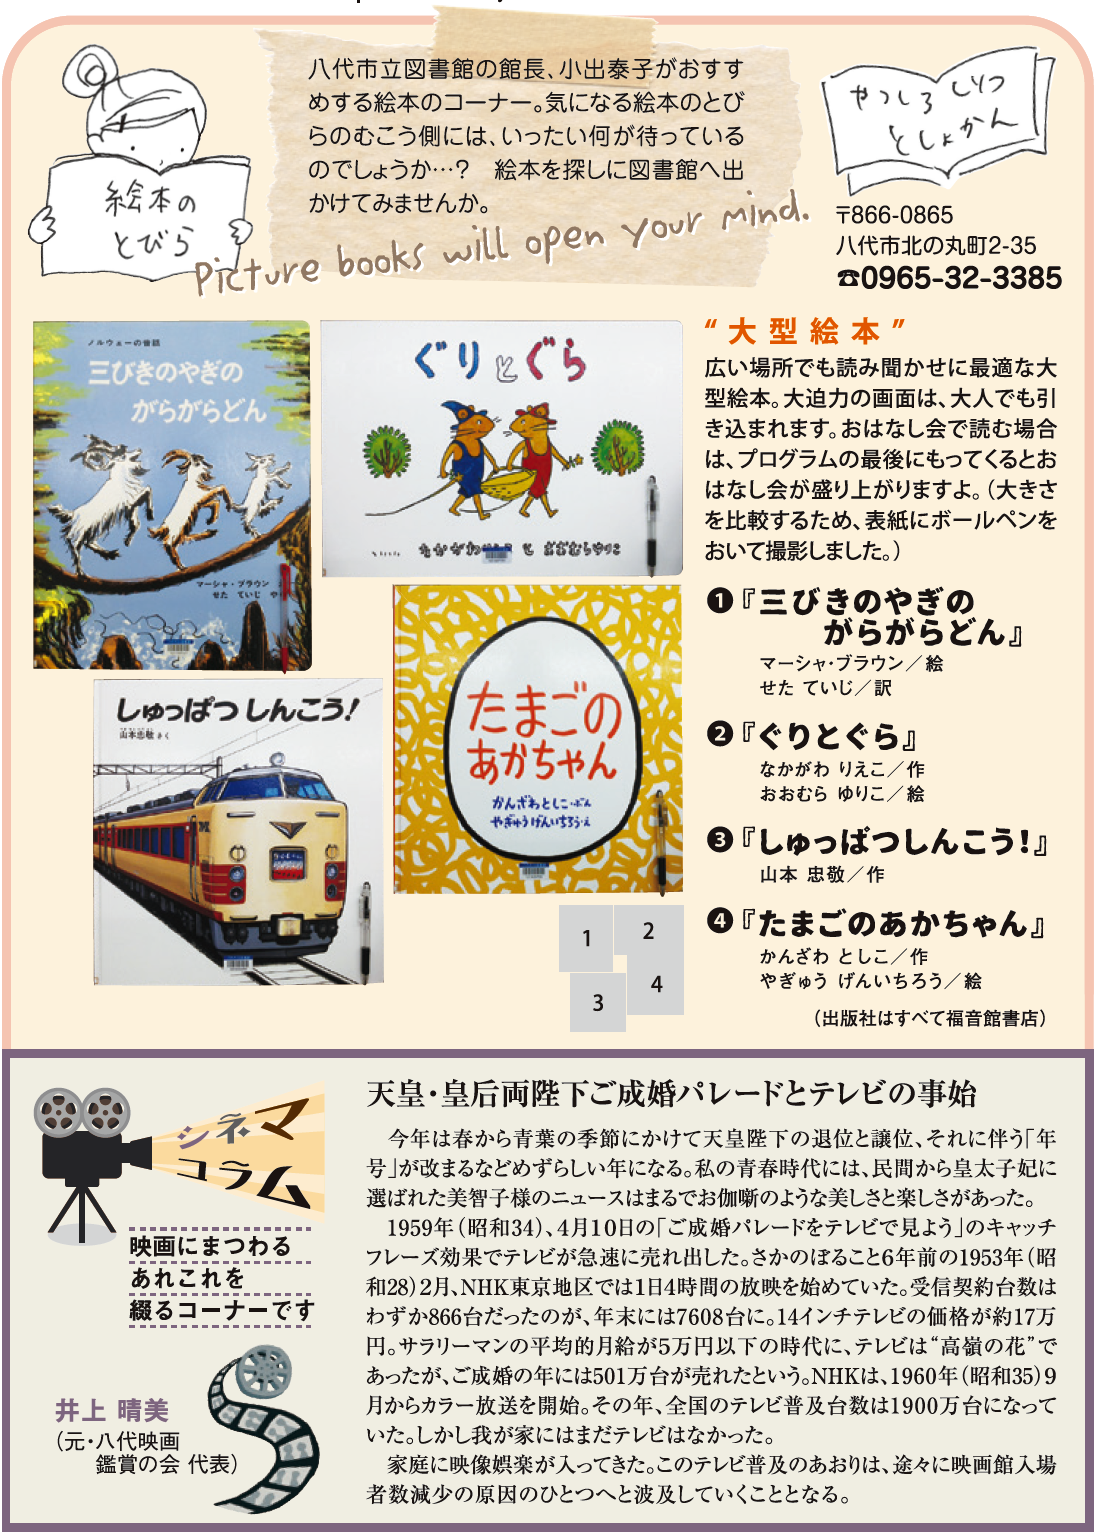 八代市立図書館の館長、小出泰子がおすす
めする絵本のコーナー。気になる絵本のとび
らのむこう側には、いったい何が待っている
のでしょうか…？　絵本を探しに図書館へ出
かけてみませんか。
絵本の
とびら
Picture books will open your mind.
やつしろ しりつ
としょかん
〒866-0865
八代市北の丸町2-35
☎0965-32-3385
ノルウェーの昔話
三びきのやぎの
がらがらどん
マーシャ・ブラウン
せた ていじ や
ぐりとぐら
しゅっぱつ しんこう!
山本忠敬 さく
たまごの
あかちゃん
かんざわとしこ・ぶん
やぎゅうげんいちろう・え
1
2
3
4
“大型絵本”
広い場所でも読み聞かせに最適な大
型絵本。大迫力の画面は、大人でも引
き込まれます。おはなし会で読む場合
は、プログラムの最後にもってくるとお
はなし会が盛り上がりますよ。（大きさ
を比較するため、表紙にボールペンを
おいて撮影しました。）
❶『三びきのやぎの
がらがらどん』
マーシャ・ブラウン／絵
せた ていじ／訳
❷『ぐりとぐら』
なかがわ りえこ／作
おおむら ゆりこ／絵
❸『しゅっぱつしんこう!』
山本 忠敬／作
❹『たまごのあかちゃん』
かんざわ としこ／作
やぎゅう げんいちろう／絵
（出版社はすべて福音館書店）
シネマ
コラム
映画にまつわる
あれこれを
綴るコーナーです
井上 晴美
（元・八代映画
鑑賞の会 代表）
天皇・皇后両陛下ご成婚パレードとテレビの事始
今年は春から青葉の季節にかけて天皇陛下の退位と譲位、それに伴う「年
号」が改まるなどめずらしい年になる。私の青春時代には、民間から皇太子妃に
選ばれた美智子様のニュースはまるでお伽噺のような美しさと楽しさがあった。
1959年（昭和34）、4月10日の「ご成婚パレードをテレビで見よう」のキャッチ
フレーズ効果でテレビが急速に売れ出した。さかのぼること6年前の1953年（昭
和28）2月、NHK東京地区では1日4時間の放映を始めていた。受信契約台数は
わずか866台だったのが、年末には7608台に。14インチテレビの価格が約17万
円。サラリーマンの平均的月給が5万円以下の時代に、テレビは“高嶺の花”で
あったが、ご成婚の年には501万台が売れたという。NHKは、1960年（昭和35）9
月からカラー放送を開始。その年、全国のテレビ普及台数は1900万台になって
いた。しかし我が家にはまだテレビはなかった。
家庭に映像娯楽が入ってきた。このテレビ普及のあおりは、途々に映画館入場
者数減少の原因のひとつへと波及していくこととなる。